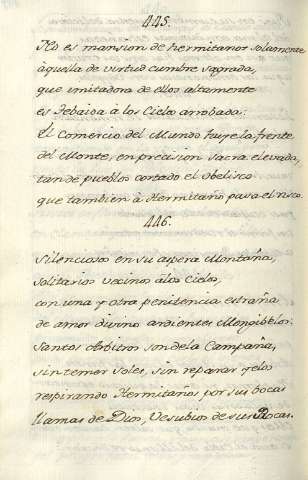 445.
No es mansion de hermitanos solamente
àquella de virtud cumbre sagrada,
que imitadora de ellos altamente
es Tebaida à los Cielos arrobada:
El Comercio del Mundo huye la frente
del Monte, en precision sacra elevada,
tan de pueblos cortado el obelisco
que tambien à Hermitaño pasa el risco.
446.
Silenciosos en su aspera Montaña,
solitarios vecinos àlos Cielos,
con una y otra penitencia estraña
de amor divino ardientes Mongibelos:
Santos Arbitros son dela Campaña,
sin temer soles, sin reparar yelos
respirando Hermitaños por sus bocas
llamas de Dios, Vesubios de sus Rocas.